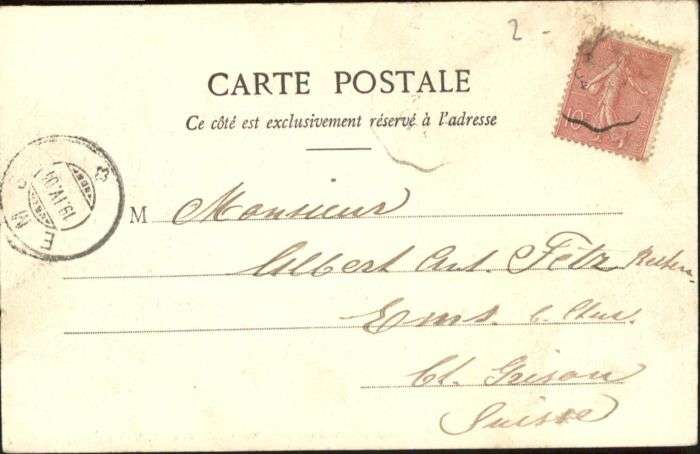 2 -
CARTE POSTALE
Ce côté est exclusivement réservé à l'adresse
M Monsieur
Albert Ant. Fetz
Ems b. Chur.
Ct. Grison
Suisse
EMS
19.IV.04
10